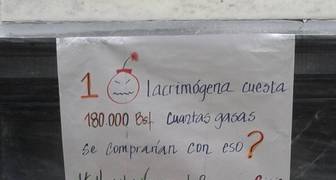 1 lacrimógena cuesta
180.000 Bsf cuantas gasas
se comprarían con eso?